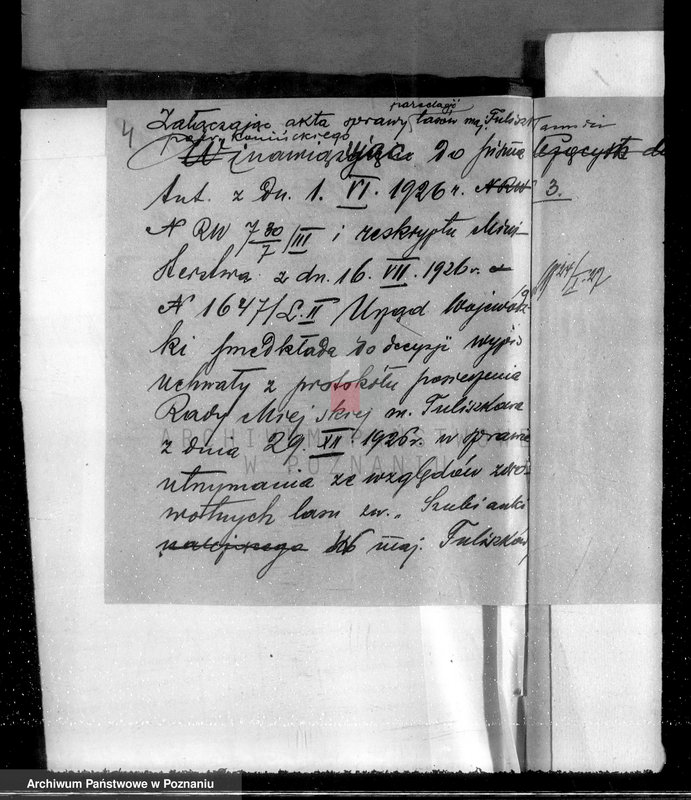 4
parcelacji
Załączając akta sprawy lasów maj. Tuliszków
pow. Konińskiego
nawiązując do pisma
tut. z dn. 1. VI. 1926 r. 3.
N RW 7 30/7 /III i reskryptu Mini
sterstwa z dn. 16. VII. 1926 r.
N 1647/L.II Urząd Wojewódz
ki przedkłada do decyzji wypis
uchwały z protokółu posiedzenia
Rady Miejskiej m. Tuliszkowa
z dnia 29. XII. 1926 r. w sprawie
utrzymania ze względów zdro
wotnych lasu zw. „Szubianki
maj. Tuliszków
ARCHIWUM PAŃSTWOWE
W POZNANIU
Archiwum Państwowe w Poznaniu